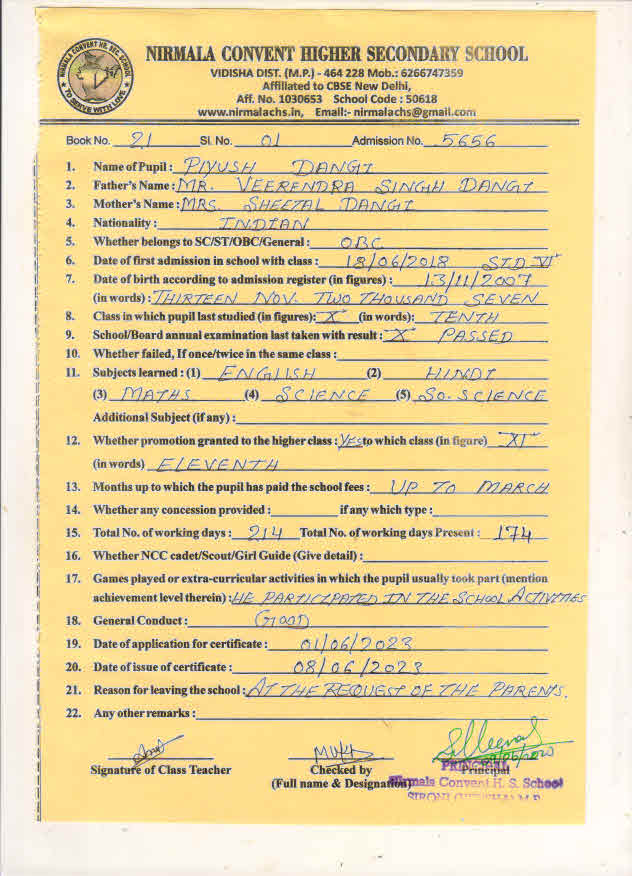 NIRMALA CONVENT HR. SEC. SCHOOL
TO SERVE WITH LOVE
NIRMALA CONVENT HIGHER SECONDARY SCHOOL
VIDISHA DIST. (M.P.) - 464 228 Mob.: 6266747359
Affiliated to CBSE New Delhi,
Aff. No. 1030653 School Code : 50618
www.nirmalachs.in, Email:- nirmalachs@gmail.com
Book No. 21 Sl. No. 01 Admission No. 5656
1. Name of Pupil : PIYUSH DANGI
2. Father's Name : MR. VEERENDRA SINGH DANGI
3. Mother's Name : MRS. SHEETAL DANGI
4. Nationality : INDIAN
5. Whether belongs to SC/ST/OBC/General : OBC
6. Date of first admission in school with class : 18/06/2018 STD VI
7. Date of birth according to admission register (in figures) : 13/11/2007
(in words) : THIRTEEN NOV. TWO THOUSAND SEVEN
8. Class in which pupil last studied (in figures): X (in words): TENTH
9. School/Board annual examination last taken with result : X PASSED
10. Whether failed, If once/twice in the same class :
11. Subjects learned : (1) ENGLISH (2) HINDI
(3) MATHS (4) SCIENCE (5) SO. SCIENCE
Additional Subject (if any) :
12. Whether promotion granted to the higher class : YES to which class (in figure) XI
(in words) ELEVENTH
13. Months up to which the pupil has paid the school fees : UP TO MARCH
14. Whether any concession provided : if any which type :
15. Total No. of working days : 214 Total No. of working days Present : 174
16. Whether NCC cadet/Scout/Girl Guide (Give detail) :
17. Games played or extra-curricular activities in which the pupil usually took part (mention
achievement level therein) : HE PARTICIPATED IN THE SCHOOL ACTIVITIES
18. General Conduct : GOOD
19. Date of application for certificate : 01/06/2023
20. Date of issue of certificate : 08/06/2023
21. Reason for leaving the school : AT THE REQUEST OF THE PARENTS.
22. Any other remarks :
Signature of Class Teacher Checked by Principal
PRINCIPAL
(Full name & Designation)
Nirmala Convent H. S. School